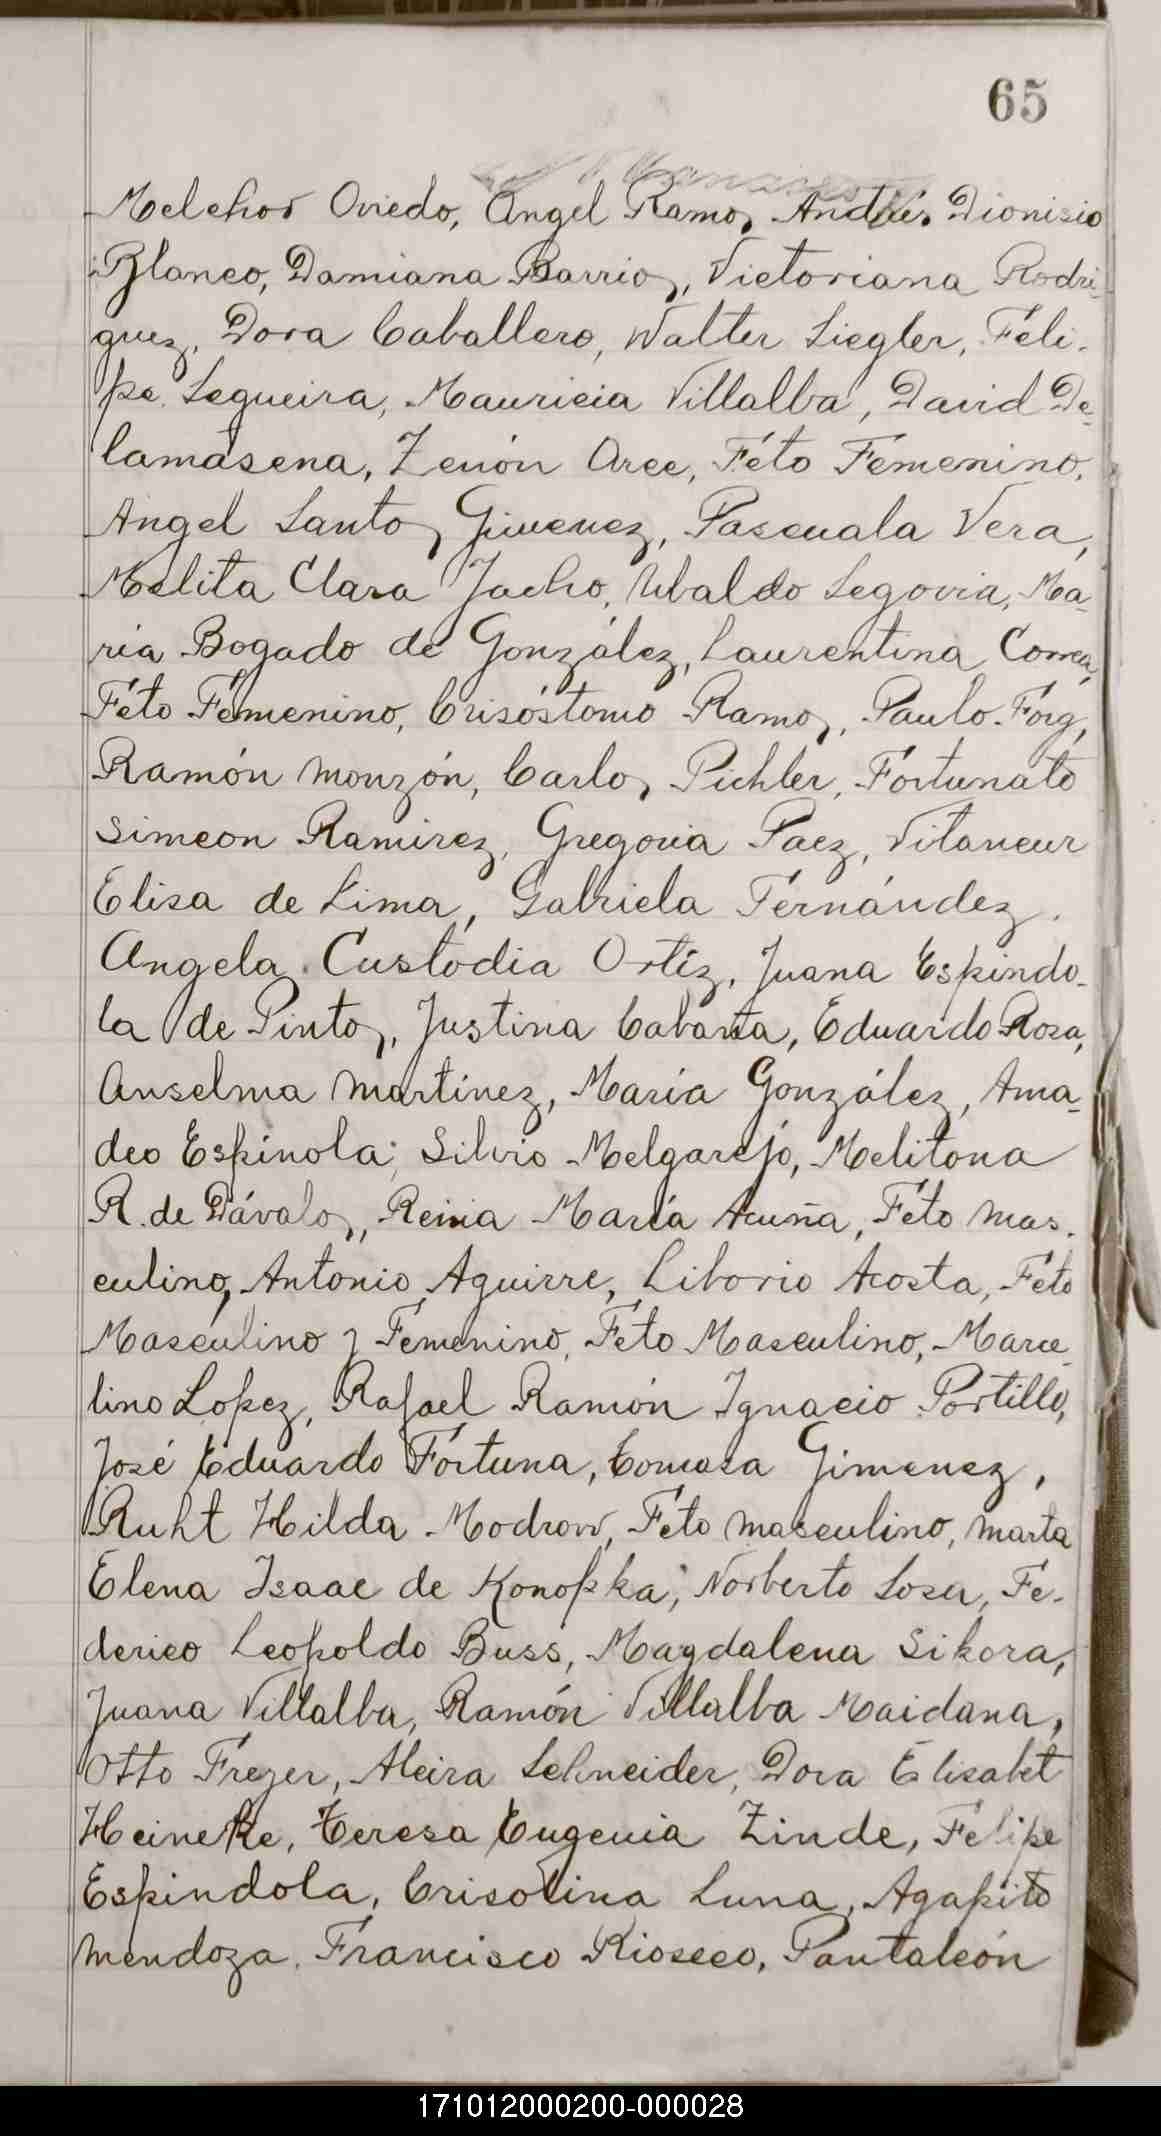 65
Melchor Oviedo, Angel Ramos, Andrés Dionisio
Blanco, Damiana Barrios, Victoriana Rodrí-
guez, Dora Caballero, Walter Siegler, Féli-
pe Segueira, Mauricia Villalba, David De-
lamasena, Zenón Arce, Féto Femenino,
Angel Santos Gimenez, Pascuala Vera,
Melita Clara Jacho, Ubaldo Segovia, Ma-
ría Bogado de González, Laurentina Correa,
Féto Femenino, Crisóstomo Ramos, Paulo Forg,
Ramón Monzón, Carlos Pichler, Fortunato
Simeon Ramirez, Gregoria Paez, Vitaneur
Elisa de Lima, Gabriela Fernández,
Angela Custodia Ortíz, Juana Espindo-
la de Pintos, Justina Cabaña, Eduardo Rosa,
Anselma Martínez, María González, Ama-
deo Espínola, Silvio Melgarejo, Melitona
R. de Dávalos, Reina María Acuña, Féto Mas-
culino, Antonio Aguirre, Liborio Acosta, Feto
Masculino y Femenino, Feto Masculino, Marce-
lino Lopez, Rafael Ramón Ignacio Portillo,
José Eduardo Fortuna, Tomasa Gimenez,
Ruht Hilda Modrow, Feto masculino, Marta
Elena Isaac de Konopka, Norberto Sosa, Fe-
derico Leopoldo Buss, Magdalena Sikora,
Juana Villalba, Ramón Villalba Maidana,
Otto Freyer, Alcira Schneider, Dora Elisabet
Heineke, Teresa Eugenia Zinde, Felipe
Espindola, Crisolina Luna, Agapito
Mendoza, Francisco Rioseco, Pantaleón
171012000200-000028